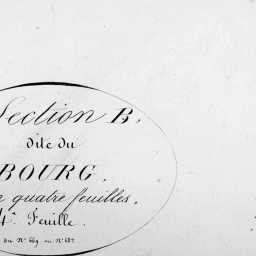 Section B.
dite du
BOURG.
quatre feuilles.
4e Feuille.
du N° 669 au N°